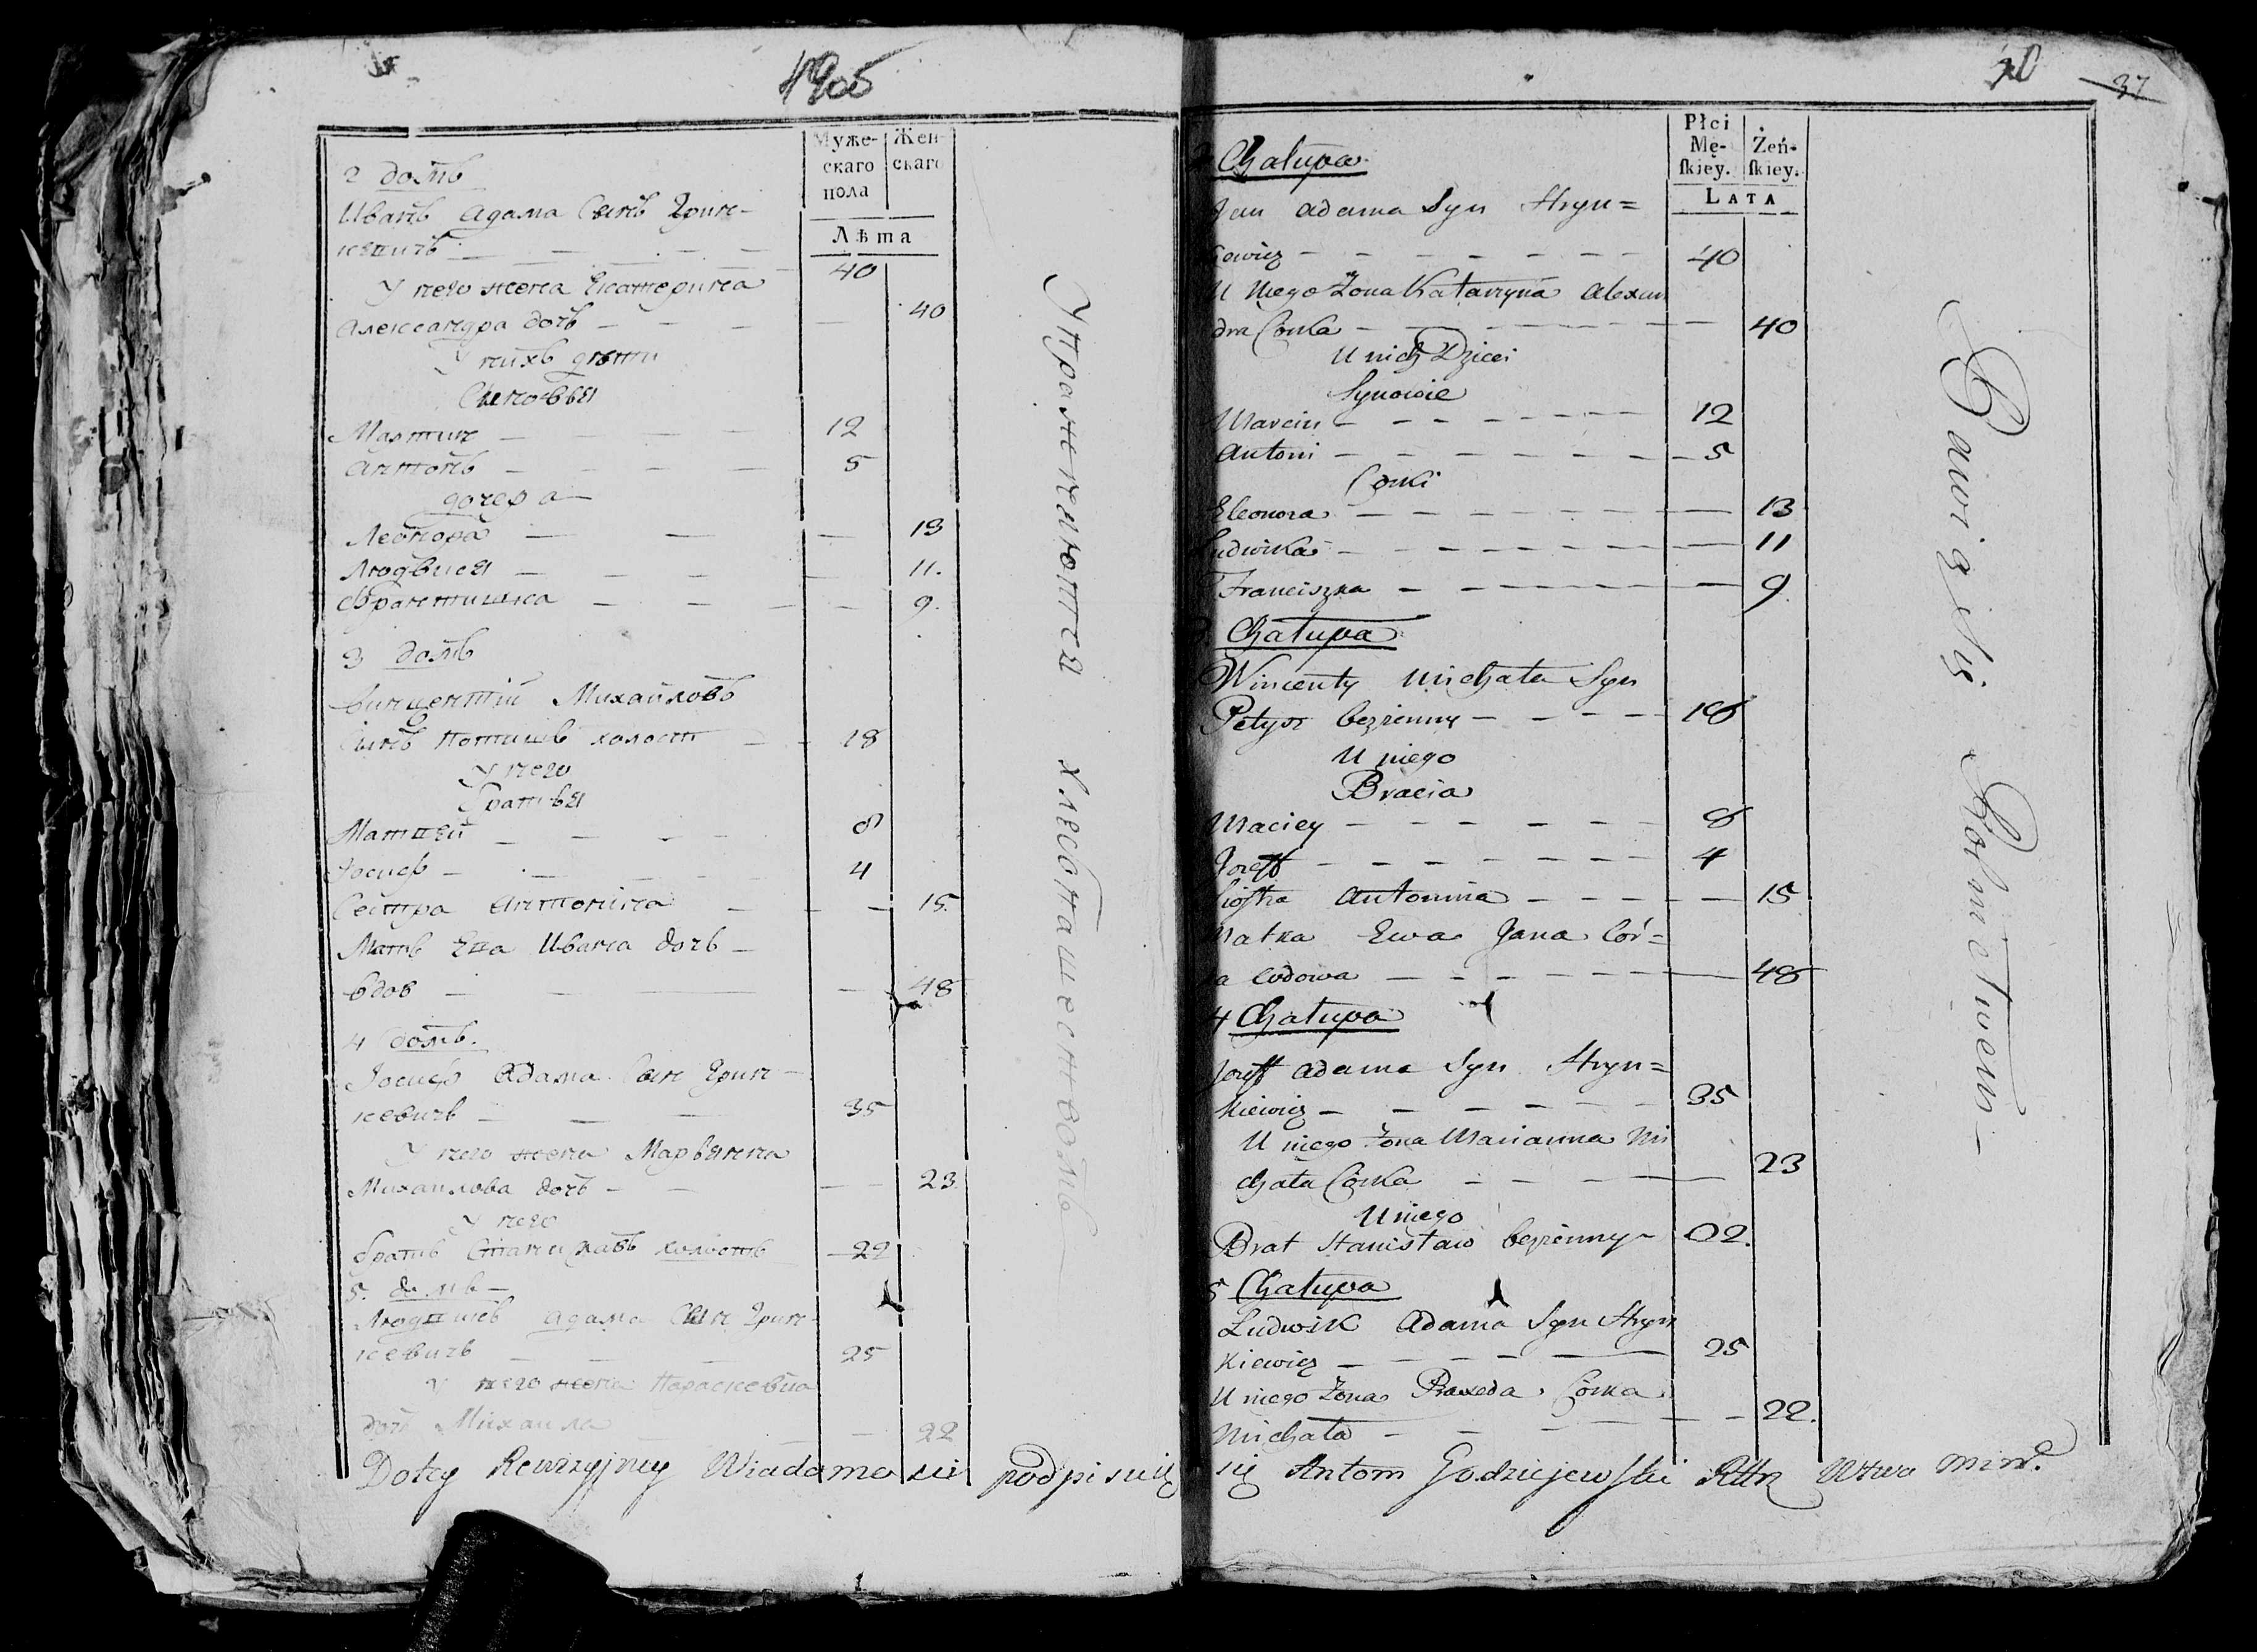 4905
Муже-
скаго
пола
Жен-
скаго
Лѣта
2 домъ
Иванъ Адама Сынъ Грин-
кевичъ 40
У него жена Екатерина
Александра дочь 40
У нихъ дѣти
Сыновья
Мартин 12
Антонъ 5
дочери
Леонора 13
Людвися 11.
Францишка 9.
3 домъ
Винцентій Михайловъ
Сынъ холост 18
У него
Братья
Матвей 8
Іосиф 4
Сестра Антонина 15.
Мать Ева Ивана дочь
вдов 48
4 домъ.
Іосифъ Адама Сын Грин-
кевичъ 35
У него жена Марьянна
Михаилова дочь 23.
У него
братъ Станиславъ холостъ 22
5. домъ
Людвикъ Адама Сын Грин-
кевичъ 25
У него жена Параскевиа
дочь Михаила 22
Упражняются хлебопашенством
40
37
Płci
Mę-
ſkiey.
Żeń-
ſkiey.
LATA
Chałupa
Jan Adama Syn Hryn=
kiewicz 40
U niego Żona Katarzyna Alexan
dra Córka 40
U nich Dzieci
Synowie
Marcin 12
Antoni 5
Córki
Eleonora 13
Ludwika 11
Franciszka 9.
3 Chałupa
Wincenty Michała Syn
Petysz bezżenny 18
U niego
Bracia
Maciey 8
Jozeff 4
Siostra Antonina 15
Matka Ewa Jana Cór=
ka wdowa 48
4 Chałupa
Jozeff Adama Syn Hryn=
kiewicz 35
U niego Żona Marianna Mi
chała Córka 23
U niego
Brat Stanisław bezżenny 22.
5 Chałupa
Ludwik Adama Syn Hryn
kiewicz 25
U niego Żona Praxeda Córka
Michała 22.
Bawią się Rolnictwem
Do tey Rewizyjney Wiadomości podpisuię
się Antoni Godziejewski